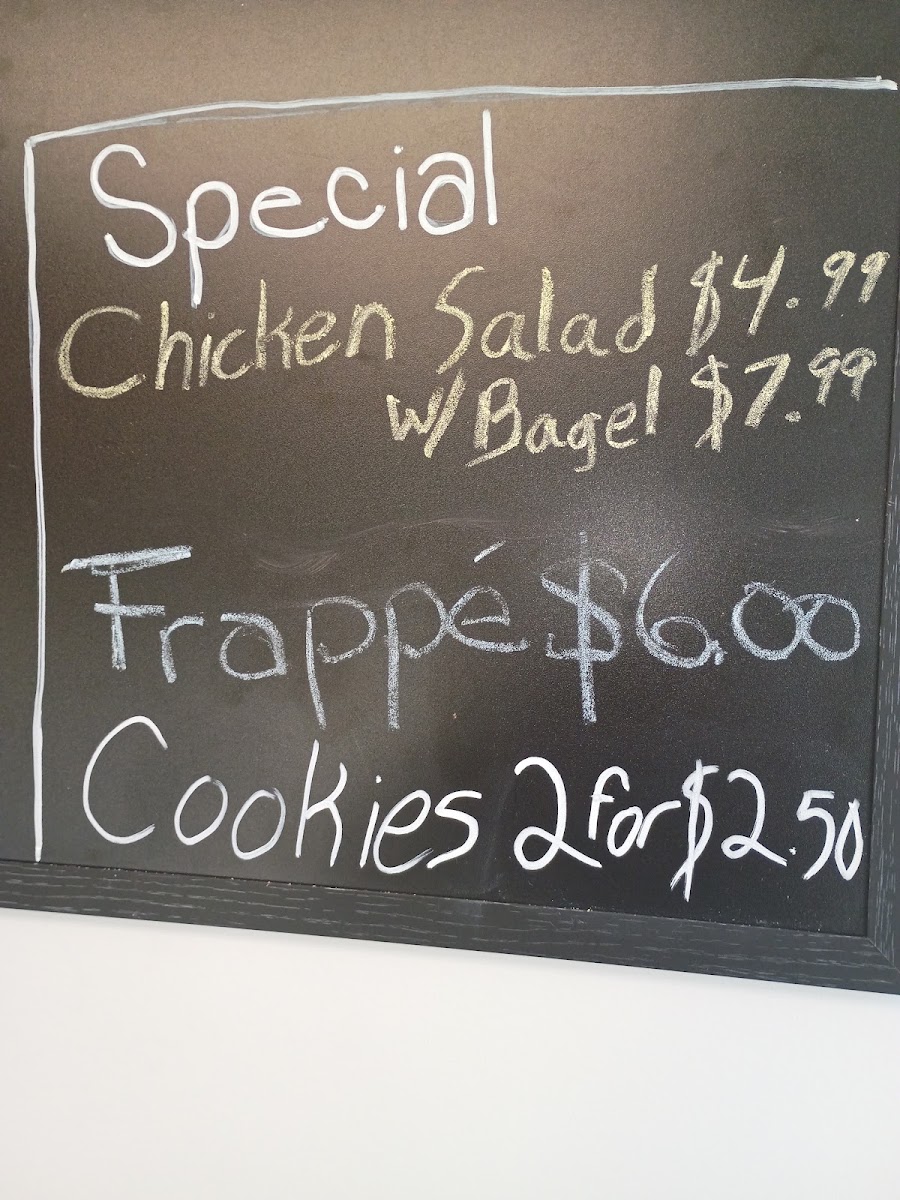 Special
Chicken Salad $4.99
w/Bagel $7.99
Frappé $6.00
Cookies 2 for $2.50